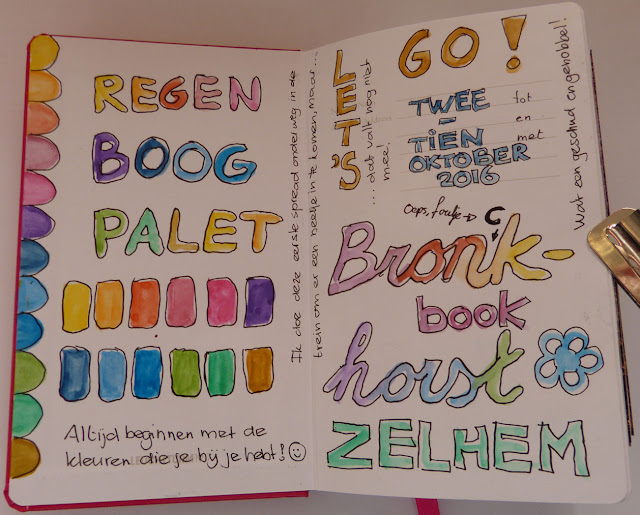 REGEN
BOOG
PALET
Altijd beginnen met de
kleuren die je bij je hebt!
Ik doe deze eerste spread onderweg in de
trein om er een beetje in te komen, maar...
... dat valt nog niet
mee.
LET'S
GO!
TWEE tot
- en
TIEN met
OKTOBER
2016
Wat een geschud en gehobbel!
Oeps, foutje → C
Bronk-
book
horst
ZELHEM